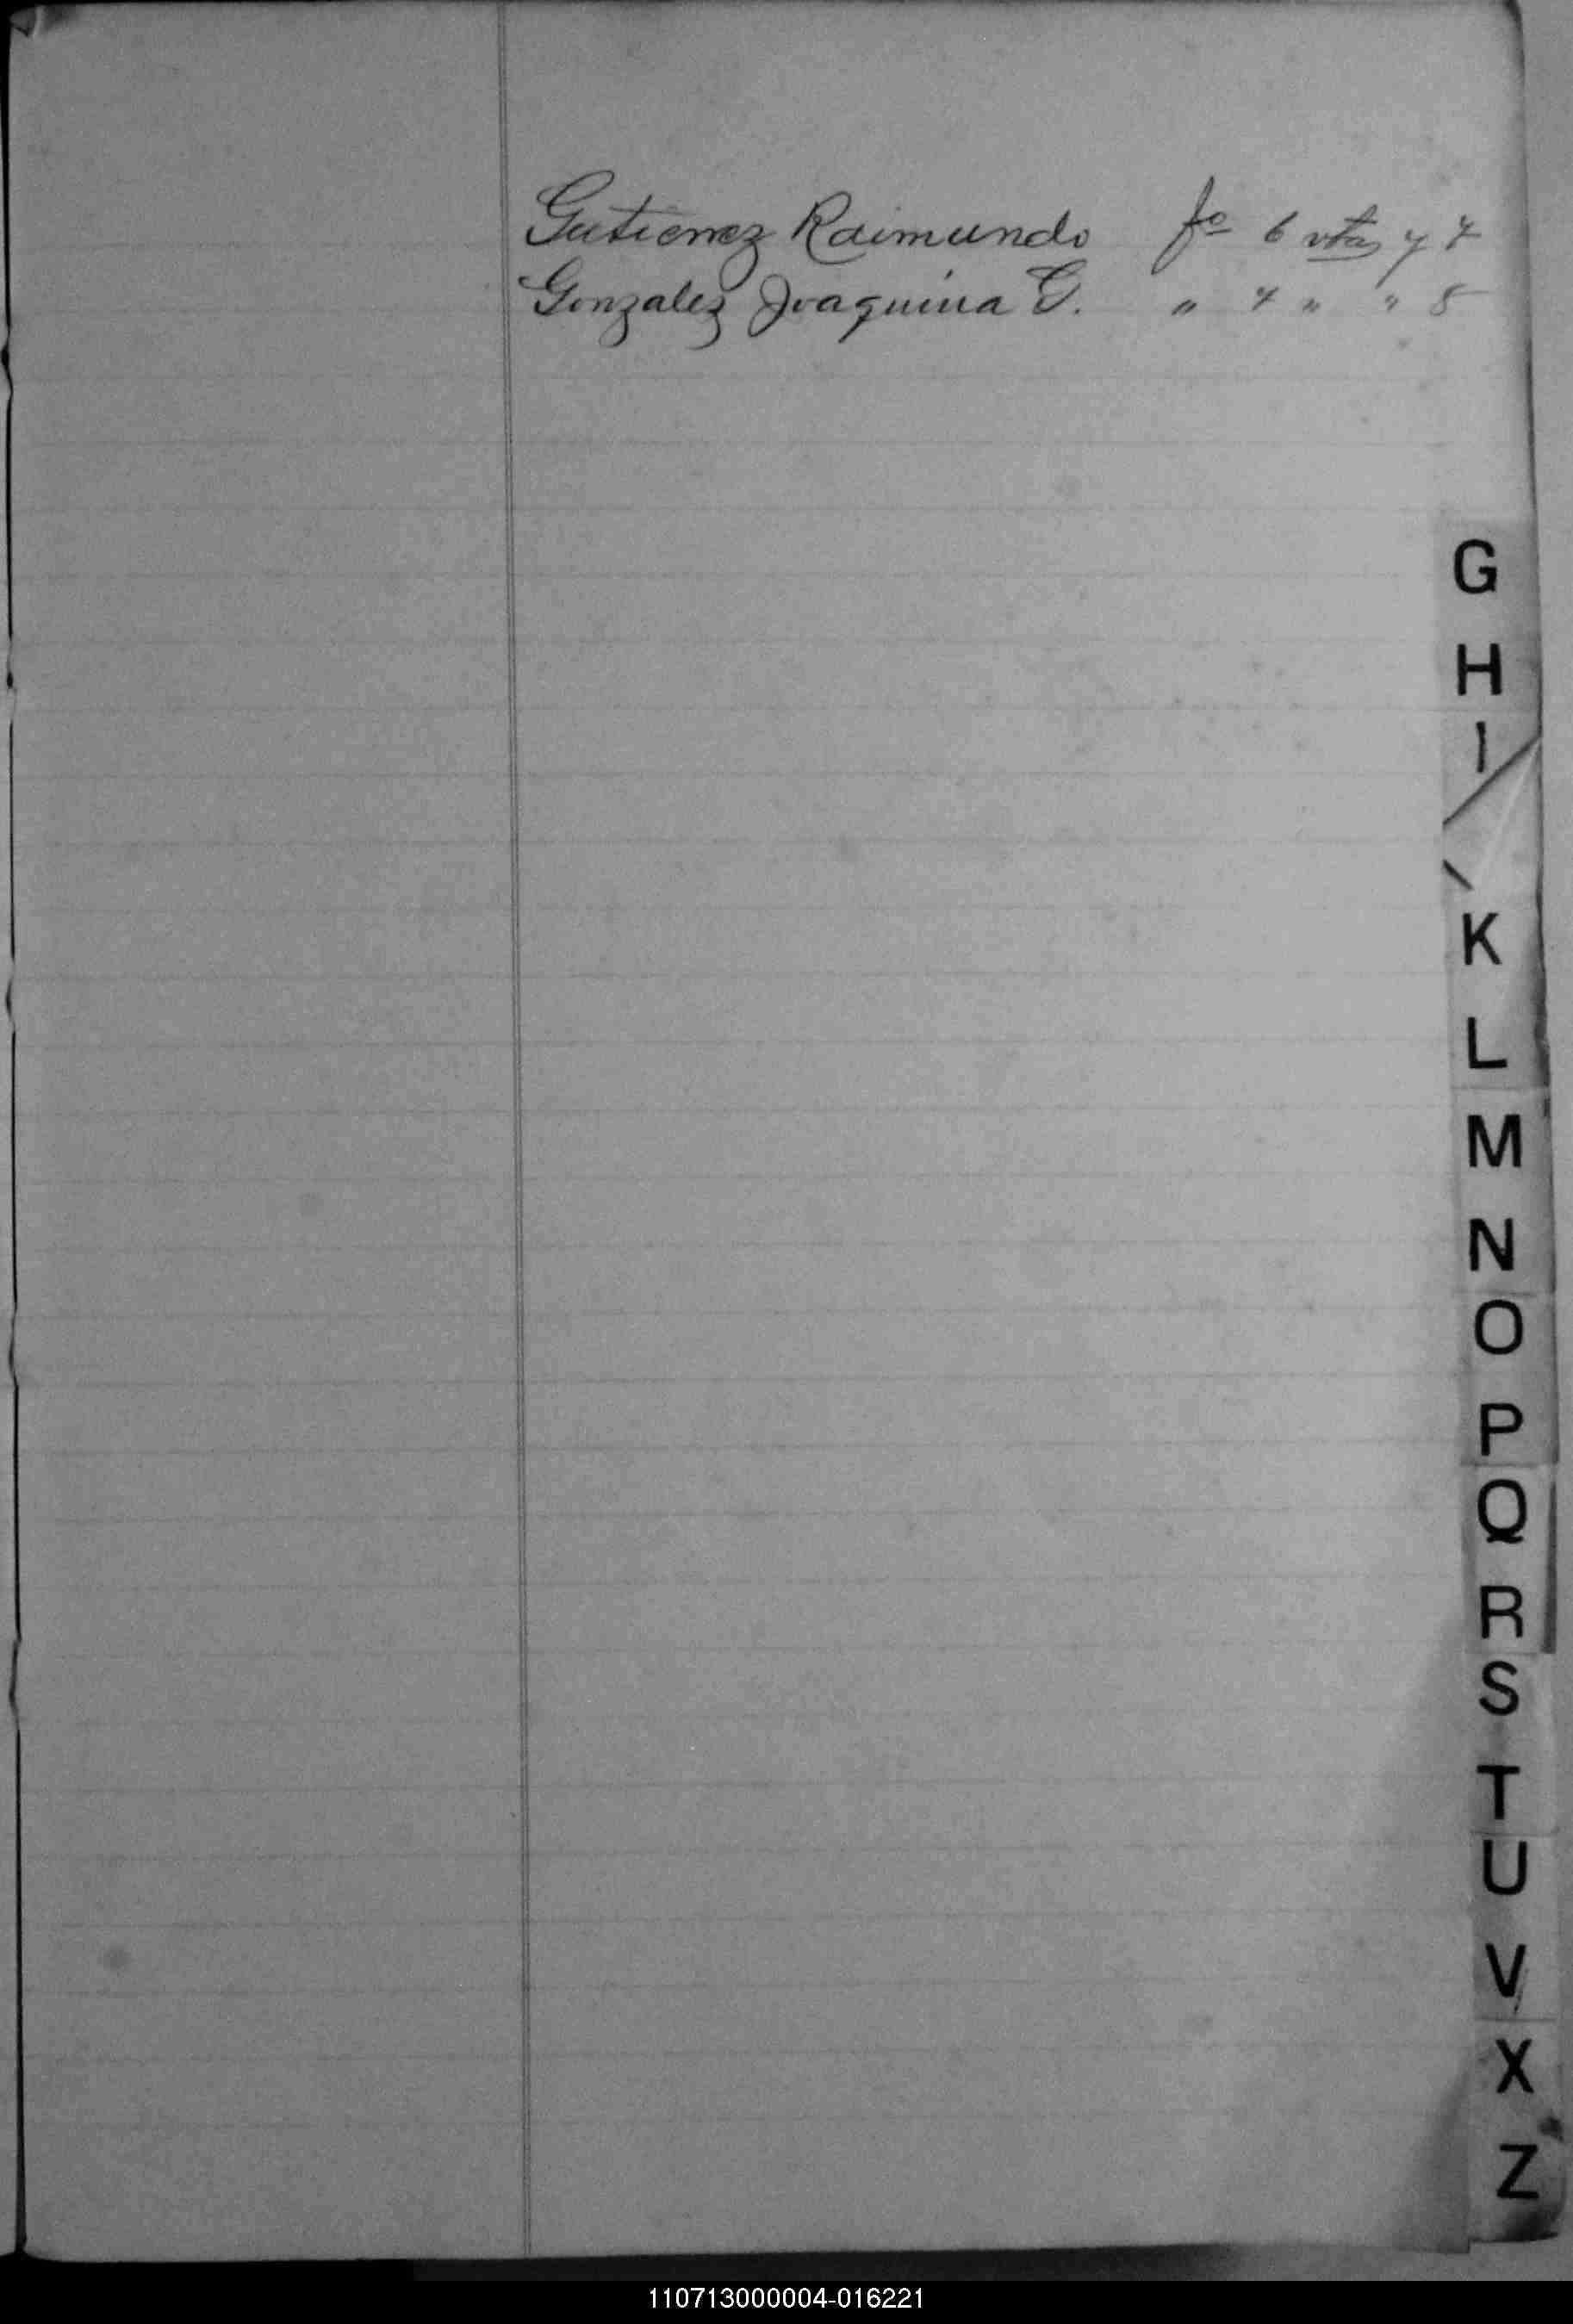 Gutierrez Raimundo fo 6 vta y 7
Gonzalez Joaquina G. " 7 " " 8
G
H
I
K
L
M
N
O
P
Q
R
S
T
U
V
X
Z
110713000004-016221